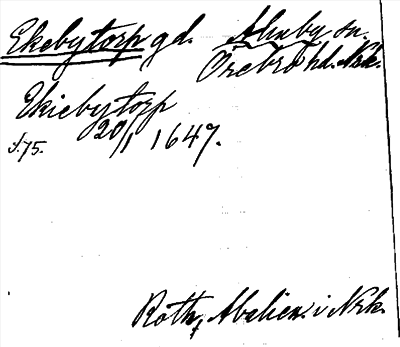 Ekebytorp gd. Almby sn.
Örebro hd. Nrk.
Ekiebytorp
s. 75. 20/1 1647.
Roth, Abelien. i Nrk.